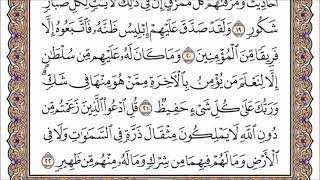 أَحَادِيثَ وَمَزَّقْنَٰهُمْ كُلَّ مُمَزَّقٍ إِنَّ فِي ذَٰلِكَ لَءَايَٰتٍ لِّكُلِّ صَبَّارٍ
شَكُورٍ ١٩ وَلَقَدْ صَدَّقَ عَلَيْهِمْ إِبْلِيسُ ظَنَّهُۥ فَٱتَّبَعُوهُ إِلَّا
فَرِيقًا مِّنَ ٱلْمُؤْمِنِينَ ٢٠ وَمَا كَانَ لَهُۥ عَلَيْهِم مِّن سُلْطَٰنٍ
إِلَّا لِنَعْلَمَ مَن يُؤْمِنُ بِٱلْءَاخِرَةِ مِمَّنْ هُوَ مِنْهَا فِي شَكٍّ
وَرَبُّكَ عَلَىٰ كُلِّ شَيْءٍ حَفِيظٌ ٢١ قُلِ ٱدْعُوا۟ ٱلَّذِينَ زَعَمْتُم مِّن
دُونِ ٱللَّهِ لَا يَمْلِكُونَ مِثْقَالَ ذَرَّةٍ فِي ٱلسَّمَٰوَٰتِ وَلَا فِي
ٱلْأَرْضِ وَمَا لَهُمْ فِيهِمَا مِن شِرْكٍ وَمَا لَهُۥ مِنْهُم مِّن ظَهِيرٍ ٢٢